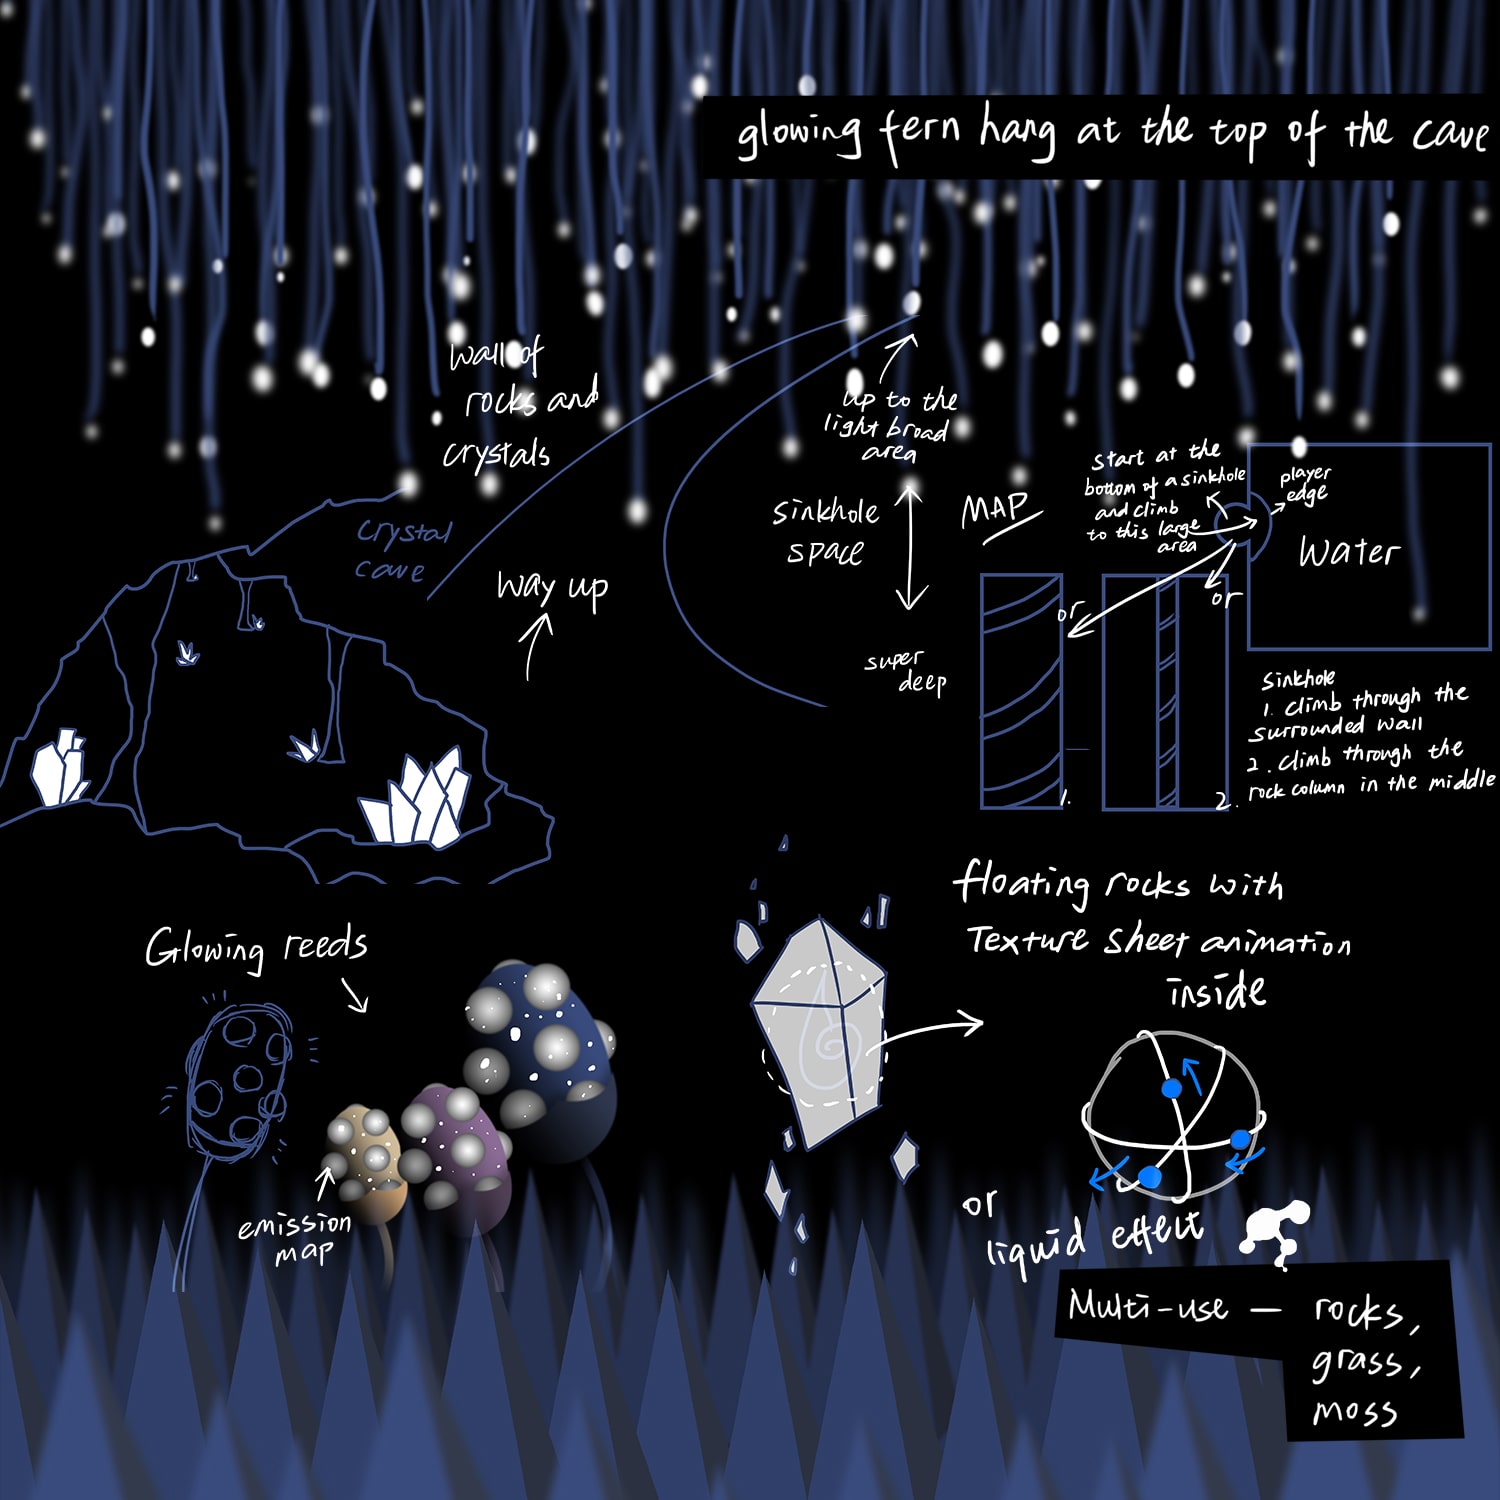 glowing fern hang at the top of the cave
wall of
rocks and
crystals
up to the
light broad
area
crystal
cave
way up
sinkhole
space
super
deep
MAP
start at the
bottom of a sinkhole
and climb
to this large
area
player
edge
Water
or
or
1.
2.
Sinkhole
1. climb through the
surrounded wall
2. climb through the
rock column in the middle
Glowing reeds
emission
map
floating rocks with
Texture Sheet animation
inside
or
liquid effect
Multi-use — rocks,
grass,
moss